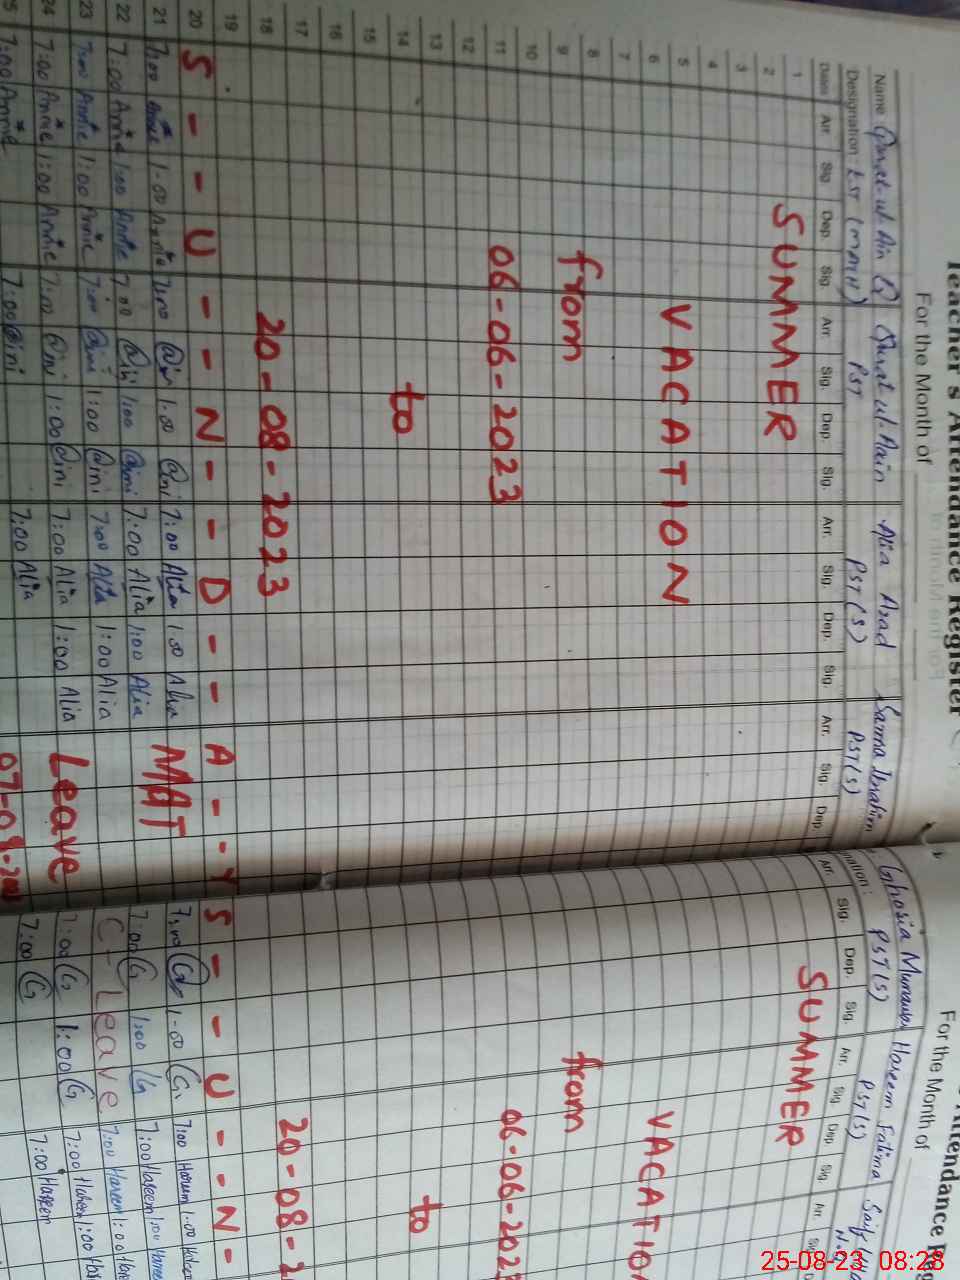 Teacher's Attendance Register
For the Month of
Name
Designation: EST (MATH) PST PST(S) PST(S)
Alia Azad
Dates Arr. Sig. Dep. Sig. Arr. Sig. Dep. Sig. Arr. Sig. Dep. Sig. Arr. Sig. Dep.
1
2
3
4
5
6
7
8
9
10
11
12
13
14
15
16
17
18
19
20
21
22
23
24
25
SUMMER
VACATION
from
06-06-2023
to
20-08-2023
S - - U - - N - - D - - A - - Y
7:00 Annie 1:00 Annie 7:00 @ini 1:00 @ini 7:00 Alia 1:00 Alia MAT
7:00 Annie 1:00 Annie 7:00 @ini 1:00 @ini 7:00 Alia 1:00 Alia
7:00 Annie 1:00 Annie 7:00 @ini 1:00 @ini 7:00 Alia 1:00 Alia
7:00 Annie 1:00 Annie 7:00 @ini 1:00 @ini 7:00 Alia 1:00 Alia Leave
7:00 Annie 7:00 @ini 7:00 Alia
Attendance Reg
For the Month of
Ghosia Hareem Fatima Saif
nation: PST(S) PST(S)
Arr. Sig. Dep. Sig. Arr. Sig. Dep. Sig. Arr.
SUMMER
VACATION
from
06-06-2023
to
20-08-2
S - - U - - N -
7:00 G 1:00 G 7:00 Hareem 1:00
7:00 G 1:00 G 7:00 Hareem 1:00 Hareem
C-Leave 7:00 Hareem 1:00
7:00 G 1:00 G 7:00 Hareem 1:00
7:00 G 7:00 Hareem
25-08-23 08:28